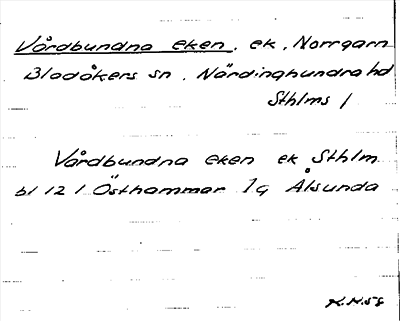 Vårdbundna eken, ek, Norrgarn
Bladåkers sn, Närdinghundra hd
Sthlms l
Vårdbundna eken ek Sthlm
bl 12 l Östhammar 1g Ålsunda
K.H.58